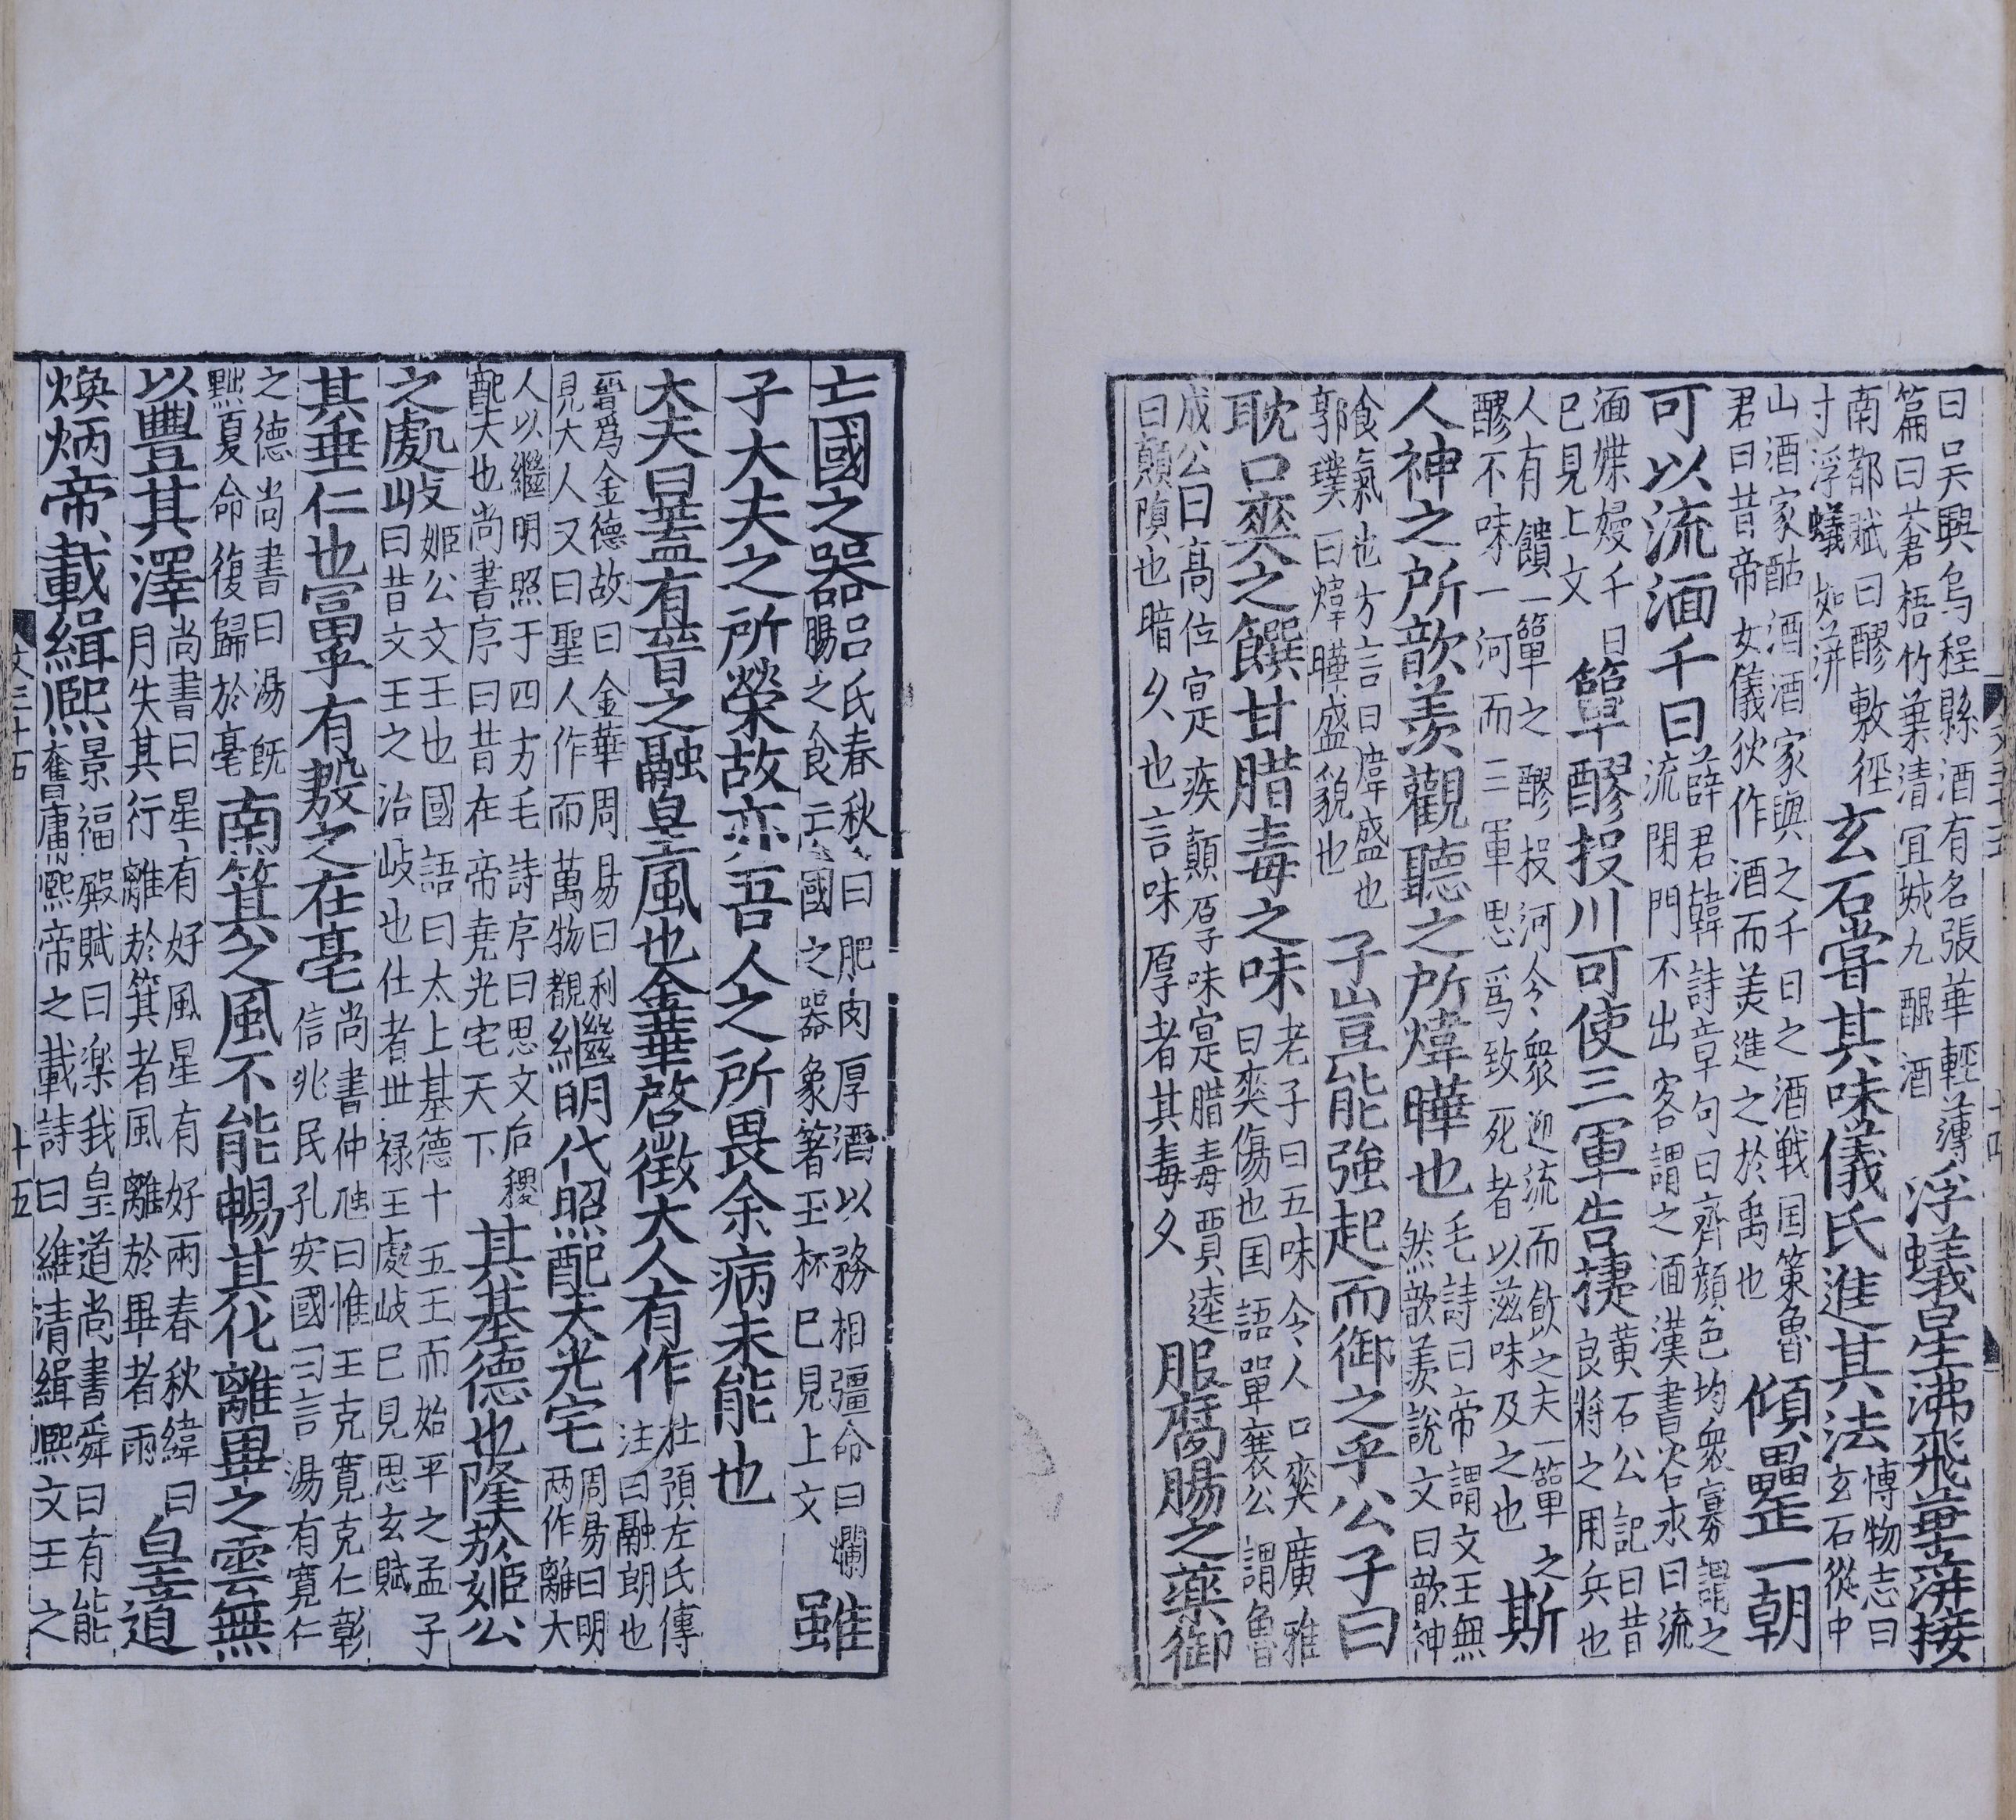 曰吳興烏程縣酒有名張華輕薄
篇曰蒼梧竹葉清冝城九醖酒
浮蟻星沸飛華蓱接
南都賦曰醪敷徑
寸浮蟻如蓱
玄石嘗其味儀氏進其法
慱物志曰
玄石從中
山酒家酤酒酒家與之千日之酒戦国策魯
君曰昔帝女儀狄作酒而美進之於禹也
傾罍一朝
可以流湎千日
薛君韓詩章句曰齊顔色均衆寡謂之
流閉門不出客謂之湎漢書谷永曰流
湎媟嫚千日
已見上文
簞醪投川可使三軍告捷
黃石公記曰昔
良將之用兵也
人有饋一簞之醪投河令衆迎流而飲之夫一簞之
醪不味一河而三軍思爲致死者以滋味及之也
斯
人神之所歆羨觀聽之所煒曄也
毛詩曰帝謂文王無
然歆羨說文曰歆神
食氣也方言曰煒盛也
郭璞曰煒曄盛貌也
子豈能強起而御之乎公子曰
耽口爽之饌甘腊毒之味
老子曰五味令人口爽廣雅
曰爽傷也国語單襄公謂魯
成公曰髙位寔疾顛厚味寔腊毒賈逵
曰顛隕也暗乆也言味厚者其毒乆
服腐腸之藥御
亡國之器
呂氏春秋曰肥肉厚酒以務相彊命曰爛
腸之食亡國之器象箸玉杯已見上文
雖
子大夫之所榮故亦吾人之所畏余病未能也
大夫曰蓋有晉之融皇風也金華啓徵大人有作
杜預左氏傳
注曰融朗也
晉爲金德故曰金華周易曰利
見大人又曰聖人作而萬物覩
繼明代照配天光宅
周易曰明
两作離大
人以繼明照于四方毛詩序曰思文后稷
配天也尚書序曰昔在帝堯光宅天下
其基德也隆於姬公
之處岐
姬公文王也國語曰太上基德十五王而始平之孟子
曰昔文王之治岐也仕者丗禄王處岐已見思玄賦
其垂仁也冨乎有殷之在亳
尚書仲虺曰惟王克寛克仁彰
信兆民孔安國曰言湯有寛仁
之德尚書曰湯旣
黜夏命復歸於亳
南箕之風不能暢其化離畢之雲無
以豐其澤
尚書曰星有好風星有好雨春秋緯曰
月失其行離於箕者風離於畢者雨
皇道
煥炳帝載緝熙
景福殿賦曰樂我皇道尚書舜曰有能
奮庸熙帝之載詩曰維清緝熈文王之
文三十五
十五